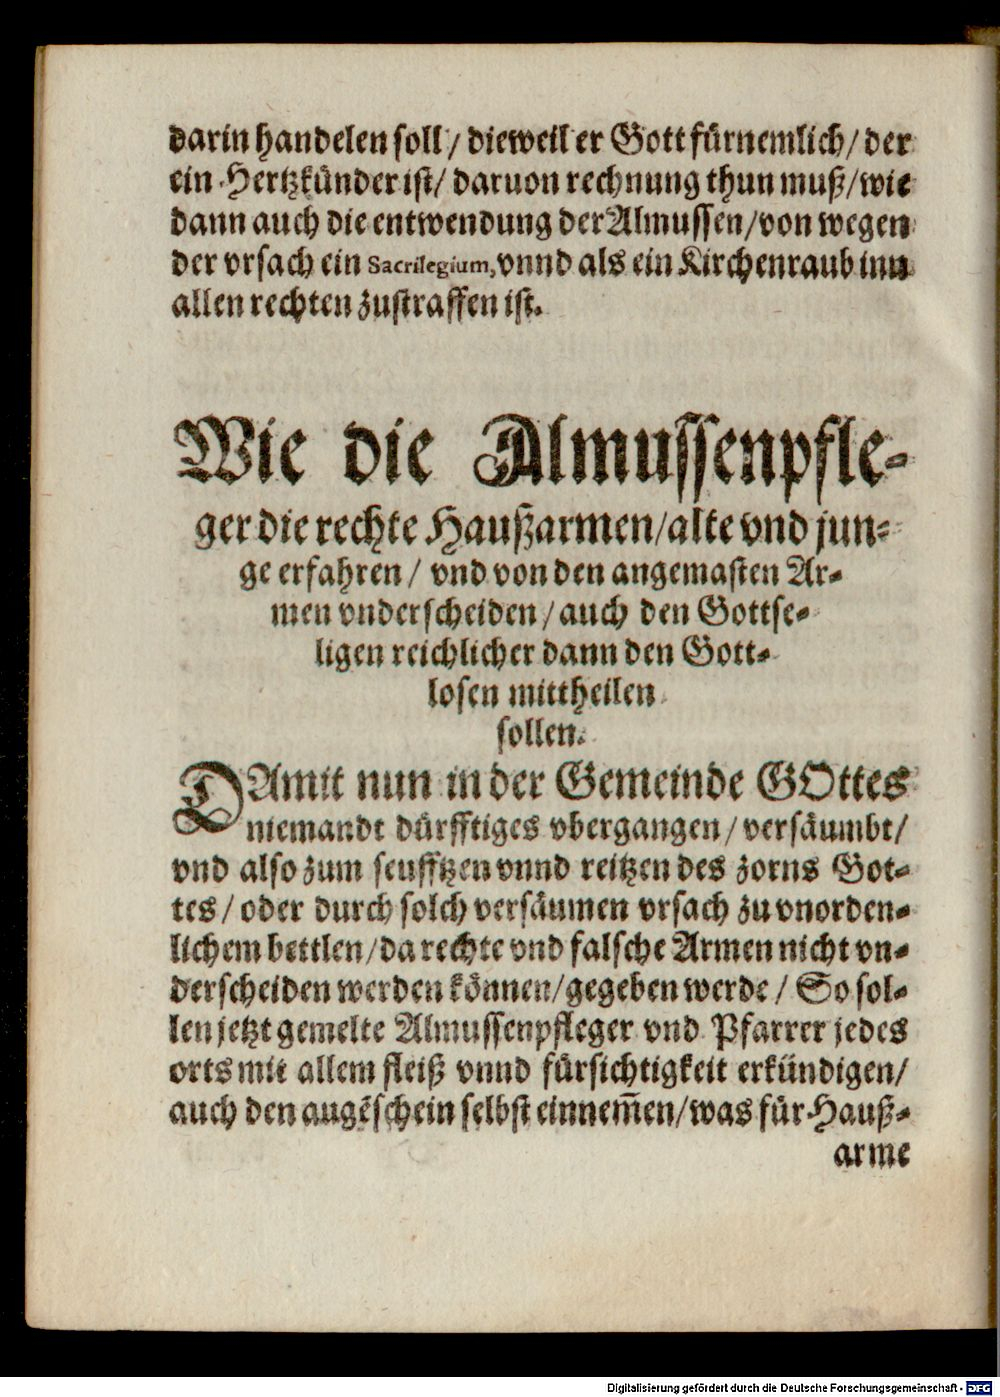 darin handelen soll / dieweil er Gott fürnemlich / der
ein Hertzkünder ist / daruon rechnung thun muß / wie
dann auch die entwendung der Almussen / von wegen
der vrsach ein Sacrilegium, vnnd als ein Kirchenraub inn
allen rechten zustraffen ist.
Wie die Almussenpfle-
ger die rechte Haußarmen / alte vnd jun-
ge erfahren / vnd von den angemasten Ar-
men vnderscheiden / auch den Gottse-
ligen reichlicher dann den Gott-
losen mittheilen
sollen.
DAmit nun in der Gemeinde GOttes
niemandt dürfftiges vbergangen / versäumbt /
vnd also zum seufftzen vnnd reitzen des zorns Got-
tes / oder durch solch versäumen vrsach zu vnorden-
lichem bettlen / da rechte vnd falsche Armen nicht vn-
derscheiden werden können / gegeben werde / So sol-
len jetzt gemelte Almussenpfleger vnd Pfarrer jedes
orts mit allem fleiß vnnd fürsichtigkeit erkündigen /
auch den augẽschein selbst einnem̃en / was für Hauß-
arme
Digitalisierung gefördert durch die Deutsche Forschungsgemeinschaft - DFG